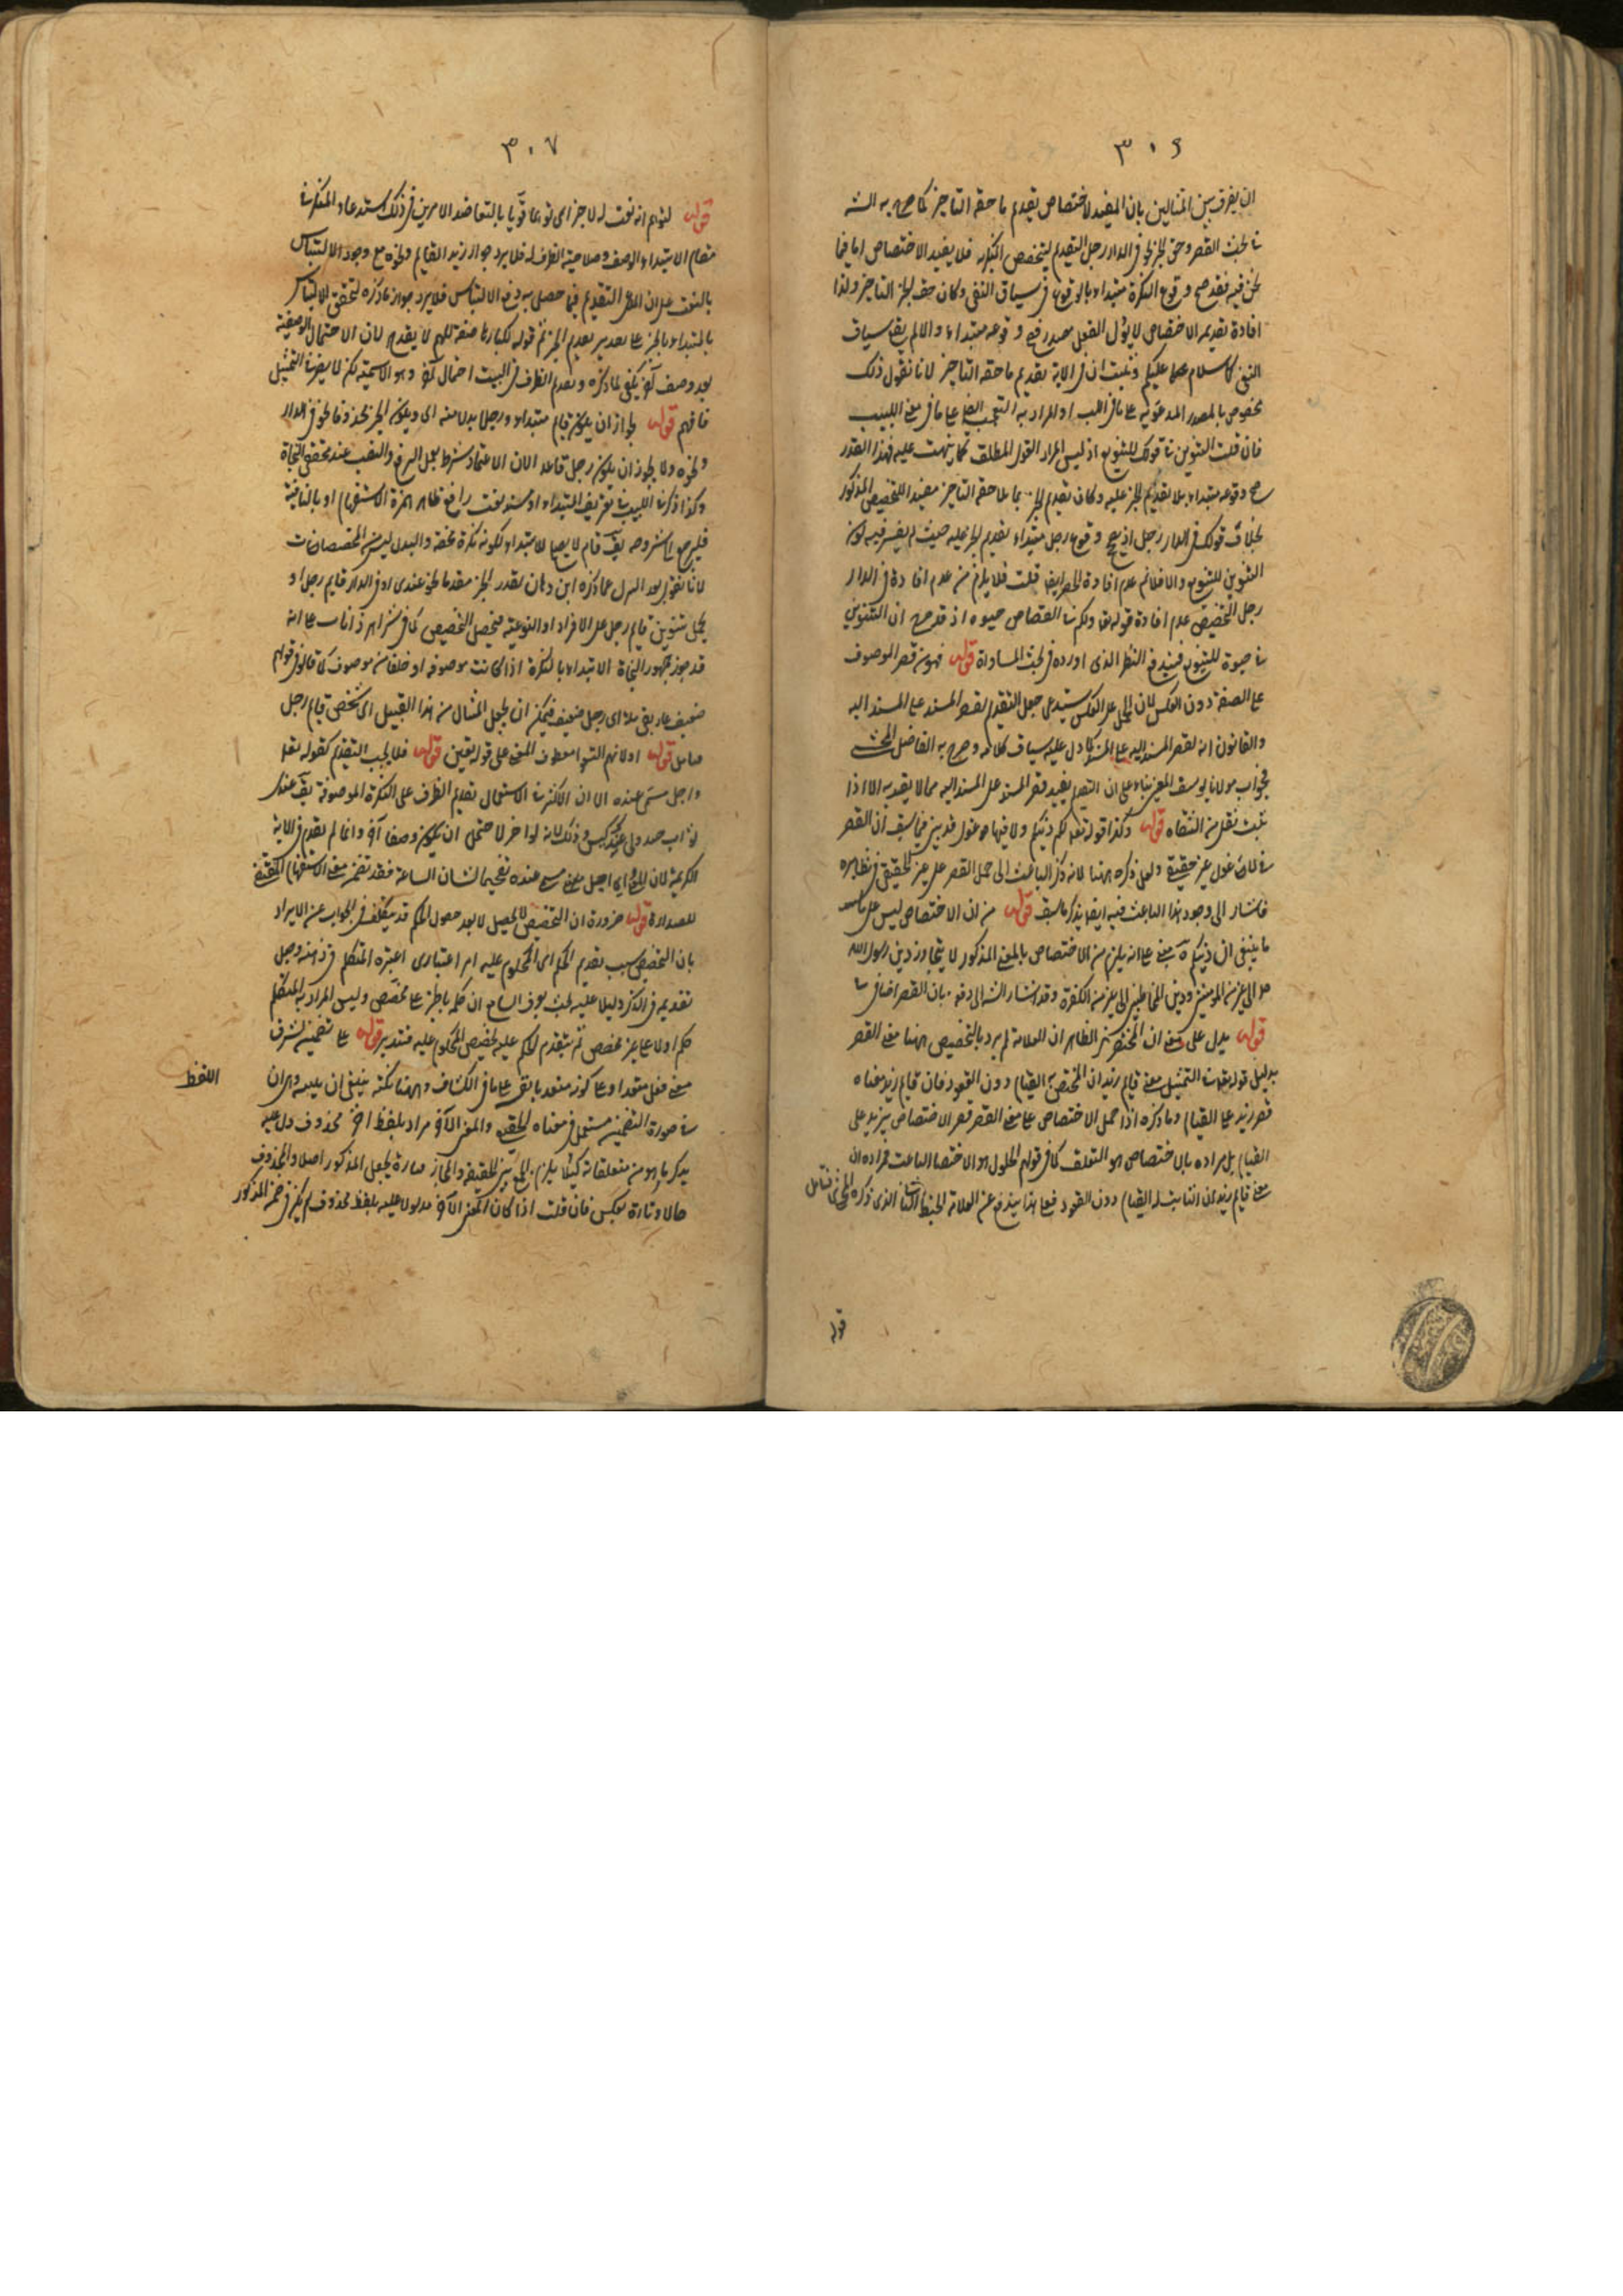 ٣٠٦
ان يفرق بين المثالين بان المفيد للاختصاص تقديم ما حقه التاخير كما صرح به الشه
نا بحث القصر وحق الخبر في في الدار رجل التقديم ليتخصص النكرة فلا يفيد الاختصاص اما فيما
نحن فيه فقد صح وقوع النكرة مبتداء بالوقوع في سياق النفي وكان حق الخبر التاخير ولذا
افادة تقديمه الاختصاص لا يؤل الفعل وقوعه مبتداء والا لم يبق سياق
النفي كما سلام عليكم فثبت ان في الاية تقديم ما حقه التاخير لانا نقول ذلك
مخصوص بالمصدر المدعو به على ما في اللب او المراد به التعجب ايضا على ما في مغني اللبيب
فان قلت التنوين في قولك للتنويع اذ ليس المراد القول المطلق كما نبهت عليه فهذا القدر
صح وقوعه مبتداء بلا تقديم الخبر عليه وكان تقديم الخبر مما حقه التاخير مفيدا للتخصيص المذكور
بخلاف قولك في الدار رجل اذ يصح وقوع رجل مبتداء بتقديم الخبر عليه حيث لم يعتبر فيه كون
التنوين للتنويع والا فلا نم عدم افادة الحصر ايضا قلت فلا يلزم من عدم افادة في الدار
رجل التخصيص عدم افادة قوله تعا ولكم في القصاص حيوة اذ قد صرح ان التنوين
في حيوة للتنويع فيندفع النظر الذي اورده في بحث المساواة قوله فهو من قصر الموصوف
على الصفة دون العكس لان الحمل على العكس يستدعي جعل التقديم لقصر المسند على المسند اليه
والقانون انه لقصر المسند اليه على المسند كما دل عليه سياق كلامه وصرح به الفاضل المحشي
فجواب مولانا يوسف المعنى بناء على ان التقديم يفيد قصر المسند على المسند اليه مما لا يعتد به الا اذا
يثبت نقل من الثقاة قوله وكذا قوله تعا لكم دينكم ولا فيها غول قد بين فيما سبق ان القصر
في لا فيها غول غير حقيقي ولعل ذكره ههنا لانه ذكر الباعث الى حمل القصر على غير الحقيقي في نظايره
فاشار الى وجود هذا الباعث فيه ايضا يذكر ما سبق قوله من ان الاختصاص ليس على
ما ينبغي ان دينكم آه يعني على انه يلزم من الاختصاص بالمعنى المذكور لا يتجاوز دين رسول الله
صلى الى غيره من المومنين ودين المخاطبين الى غيرهم من الكفرة وقد اشار الشه الى دفعه بان القصر اضافي
قوله يدل على معنى ان المختصر لكن الظاهر ان العلامة لم يرد بالتخصيص ههنا معنى القصر
بدليل قوله بعد في التمثيل معنى قايم زيد ان المختص به القيام دون القعود فان قايم زيد معناه
قصر زيد على القيام وما ذكره اذا حمل الاختصاص على معنى القصر قصر الاختصاص بزيد على
القيام بل مراده بالاختصاص هو التعلق كما في قولهم الحلول هو الاختصاص الناعت فمراده ان
معنى قايم زيد ان الثابت له القيام دون القعود فعلى هذا يندفع عن العلامة الخبط الثاني الذي ذكره المحشي فتامل
قوله
٣٠٧
قوله لتوهم انه نعت له لا جزاى توهما قويا بالتعاضد الامرين في ذلك استدعاء النكرة في
مقام الابتداء الوصف وصلاحية الظرف له فلا يرد جواز زيد القايم ونحوه مع وجود الالتباس
بالنعت على ان التقديم فيما حصل به دفع الالتباس فلا يرد جواز ما ذكره لتحقق الالتباس
بالمبتداء بالخبر على تقدير تقديم الخبر ثم قوله لكبارها صفة للهمم لا يقدح لان الاحتمال الوصفية
بعد وصف آخر يكفي لما ذكره وتقديم الظرف في البيت احتمال آخر وهو الاسمية لكن لا يضرنا التمثيل
فافهم قوله لجواز ان يكون قايم مبتداء ورجل بدلا منه اى ويكون الخبر محذوفا نحو في الدار
ونحوه ولا يجوز ان يكون رجل فاعلا لان الاعتماد شرط لعمل الرفع والنصب عند محققي النحاة
وكذا ذكر في اللبيب في تعريف المبتداء او مسند نعت رافع ظاهر همزة الاستفهام او بالنافية
فليرجع الى شروحه يق قام لا يصح للابتداء لكونه نكرة محضة والبدل ليس من المخصصات
لانا نقول بعد التنزل عما ذكره ابن دهان يقدر الخبر مقدما نحو عندى او في الدار قايم رجل او
يحمل تنوين قايم رجل على الافراد او النوعية فيحصل التخصيص كما في شر اهر ذا ناب على انه
قد جوز جمهور النحاة الابتداء بالنكرة اذا كانت موصوفة او خلفا من موصوف كما قالوا في قولهم
ضعيف عاذ بقرملة اى رجل ضعيف فيمكن ان يجعل المثال من هذا القبيل اى شخص قايم رجل
تامل قوله اولانهم التبوا معطوف المعنى على قوله يقين قوله فلا يجب التقديم كقوله تعا
واجل مسمى عنده الا ان الاكثر في الاستعمال تقديم الظرف على النكرة الموصوفة يق عندى
ثواب جيد ولى عبد كيس وذلك لانه لو اخر لاحتمل ان يكون وصفا آخر وانما لم يقدم في الاية
الكريمة لان المعنى اى اجل مسمى عنده تفخيما لشان الساعة فقد تضمن معنى الاستفهام المقتضي
للصدارة قوله ضرورة ان التخصيص لا يحصل الا بعد حصول الحكم قد يتكلف في الجواب عن الايراد
بان التخصيص بسبب تقديم الحكم اى المحكوم عليه امر اعتبارى اعتبره المتكلم في ذهنه وجعل
تقديمه في الذكر دليلا عليه بحيث يعرف السامع ان حكمه بالخبر على مخصص وليس المراد به المتكلم
حكم اولا على غير مخصص ثم بتقدم الحكم عليه تخصيص المحكوم عليه فتدبر قوله على تضمين لشرف
معنى فعل متعد او على كونه متعديا بنفسه على ما في الكشاف وههنا نكتة ينبغي ان ينبه وهي ان
في صورة التضمين مستعمل في معناه الحقيقي والمعنى الآخر مراد بلفظ آخر محذوف دل عليه
بذكر ما هو من متعلقاته كيلا يلزم الجمع بين الحقيقة والمجاز فتارة يجعل المذكور اصلا والمحذوف
حالا وتارة بعكس فان قلت اذا كان المعنى الآخر مدلولا عليه بلفظ محذوف لم يكن في ضمن المذكور
اللفظ